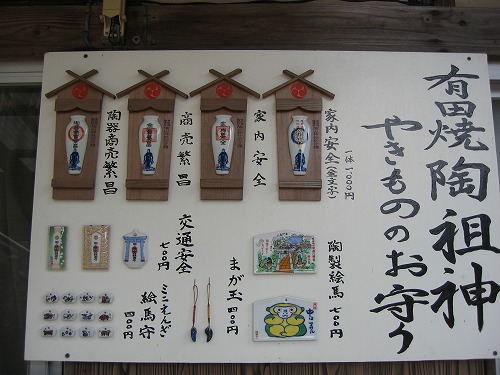 有田焼陶祖神
やきもののお守り
家内安全(金文字)
一体 1,000円
家内安全
商売繁昌
陶器商売繁昌
陶製絵馬 七〇〇円
まが玉 四〇〇円
交通安全
七〇〇円
ミニえんぎ
絵馬守
四〇〇円